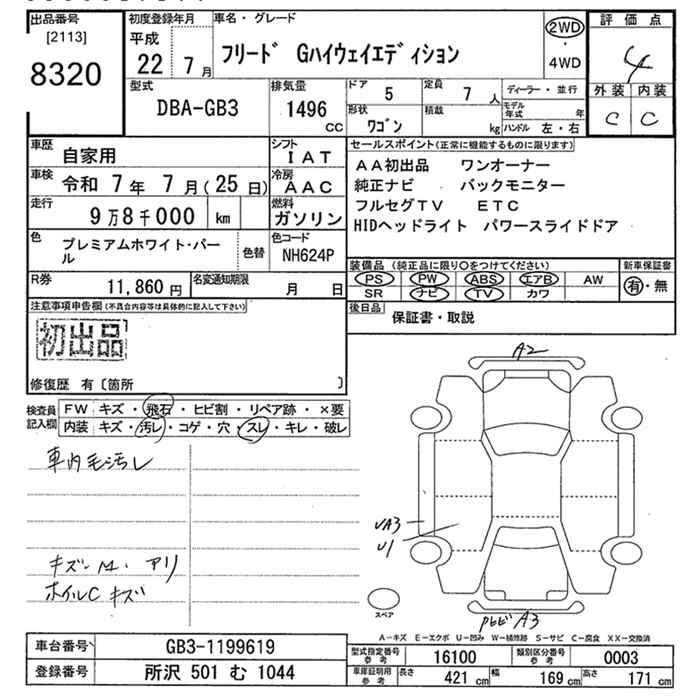 出品番号
[2113]
8320
初度登録年月
平成
22 7月
車名・グレード
フリード Gハイウェイエディション
2WD
・
4WD
評価点
4
外装 内装
C C
型式
DBA-GB3
排気量
1496
CC
ドア
5
定員
7 人
ディーラー・並行
モデル
年式 年
形状
ワゴン
積載
kg
ハンドル 左・右
車歴
自家用
シフト
IAT
車検
令和 7年 7月(25日)
冷房
AAC
走行
9万8千000 km
燃料
ガソリン
色
プレミアムホワイト・パール
色替
色コード
NH624P
R券
11,860 円
名変通知期限
月 日
セールスポイント(正常に機能するものに限ります)
AA初出品 ワンオーナー
純正ナビ バックモニター
フルセグTV ETC
HIDヘッドライト パワースライドドア
装備品(純正品に限り○をつけてください)
PS PW ABS エアB AW
SR ナビ TV カワ
新車保証書
有・無
後日品
保証書・取説
注意事項申告欄(不具合内容等は具体的に記入して下さい)
初出品
修復歴 有〔箇所 〕
検査員
記入欄
FW キズ・飛石・ヒビ割・リペア跡・×要
内装 キズ・汚レ・コゲ・穴・スレ・キレ・破レ
車内毛汚レ
キズ アリ
ホイルC キズ
A2
UA3
U1
A3
スペア
A-キズ E-エクボ U-凹み W-補修跡 S-サビ C-腐食 XX-交換済
車台番号
GB3-1199619
登録番号
所沢 501 む 1044
型式指定番号
参考
16100
類別区分番号
参考
0003
車庫証明用
参考
長さ 421 cm 幅 169 cm 高さ 171 cm